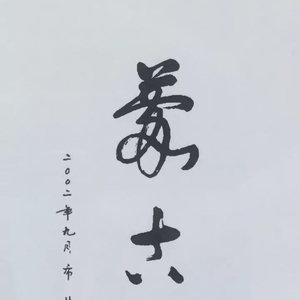 蒙古
二〇〇二年九月布